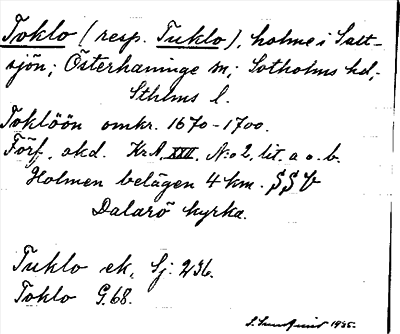 Toklo (resp. Tuklo), holme i Salt-
sjön; Österhaninge sn; Sotholms hd;
Sthlms l.
Toklöön omkr. 1670-1700.
Förf, akd. Kr.A. XXII, No 2, lit. a o. b.
Holmen belägen 4 km. SSV
Dalarö kyrka.
Tuklo ek, Sj: 236.
Toklo G.68.
1935.